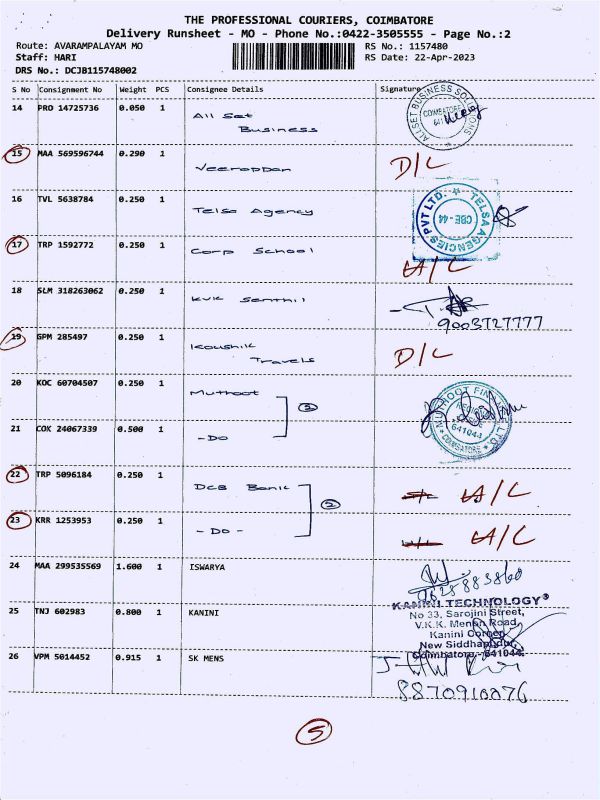 THE PROFESSIONAL COURIERS, COIMBATORE
Delivery Runsheet - MO - Phone No.:0422-3505555 - Page No.:2
Route: AVARAMPALAYAM MO RS No.: 1157480
Staff: HARI RS Date: 22-Apr-2023
DRS No.: DCJB115748002
S No Consignment No Weight PCS Consignee Details Signature
14 PRO 14725736 0.050 1 All Set
Business
ALL SET BUSINESS SOLUTIONS
COIMBATORE
15 MAA 569596744 0.290 1 Veerappan D/L
16 TVL 5638784 0.250 1 Telsa Agency
TELSA AGENCIES PVT LTD.
CBE - 44
17 TRP 1592772 0.250 1 Corp School A/C
18 SLM 318263062 0.250 1 KVK Senthil
9003727777
19 GPM 285497 0.250 1 Koushik
Travels D/L
20 KOC 60704507 0.250 1 Muthoot
2
MUTHOOT FIN LTD.
641044
COIMBATORE
21 COK 24067339 0.500 1 - DO
22 TRP 5096184 0.250 1 DCB Bank A/C
2
23 KRR 1253953 0.250 1 - DO - A/C
24 MAA 299535569 1.600 1 ISWARYA
25 TNJ 602983 0.800 1 KANINI
KANINI TECHNOLOGY
No 33, Sarojini Street,
V.K.K. Menon Road,
Kanini Corner
New Siddhapudur,
Coimbatore - 641044.
26 VPM 5014452 0.915 1 SK MENS
8870910076
5